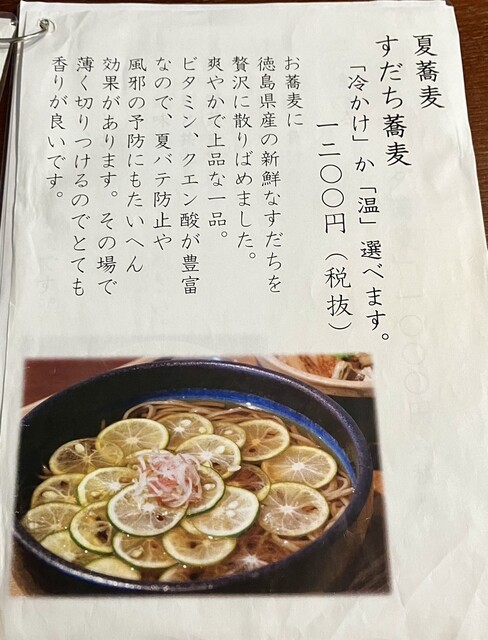 夏蕎麦
すだち蕎麦
「冷かけ」か「温」選べます。
一二〇〇円（税抜）
お蕎麦に
徳島県産の新鮮なすだちを
贅沢に散りばめました。
爽やかで上品な一品。
ビタミン、クエン酸が豊富
なので、夏バテ防止や
風邪の予防にもたいへん
効果があります。その場で
薄く切りつけるのでとても
香りが良いです。